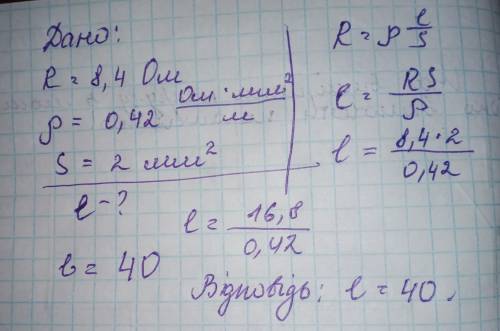 Дано:
R = 8,4 Ом
ρ = 0,42 Ом·мм²/м
S = 2 мм²
l - ?
R = ρ l/S
l = RS/ρ
l = 8,4·2/0,42
l = 16,8/0,42
l = 40
Відповідь: l = 40.